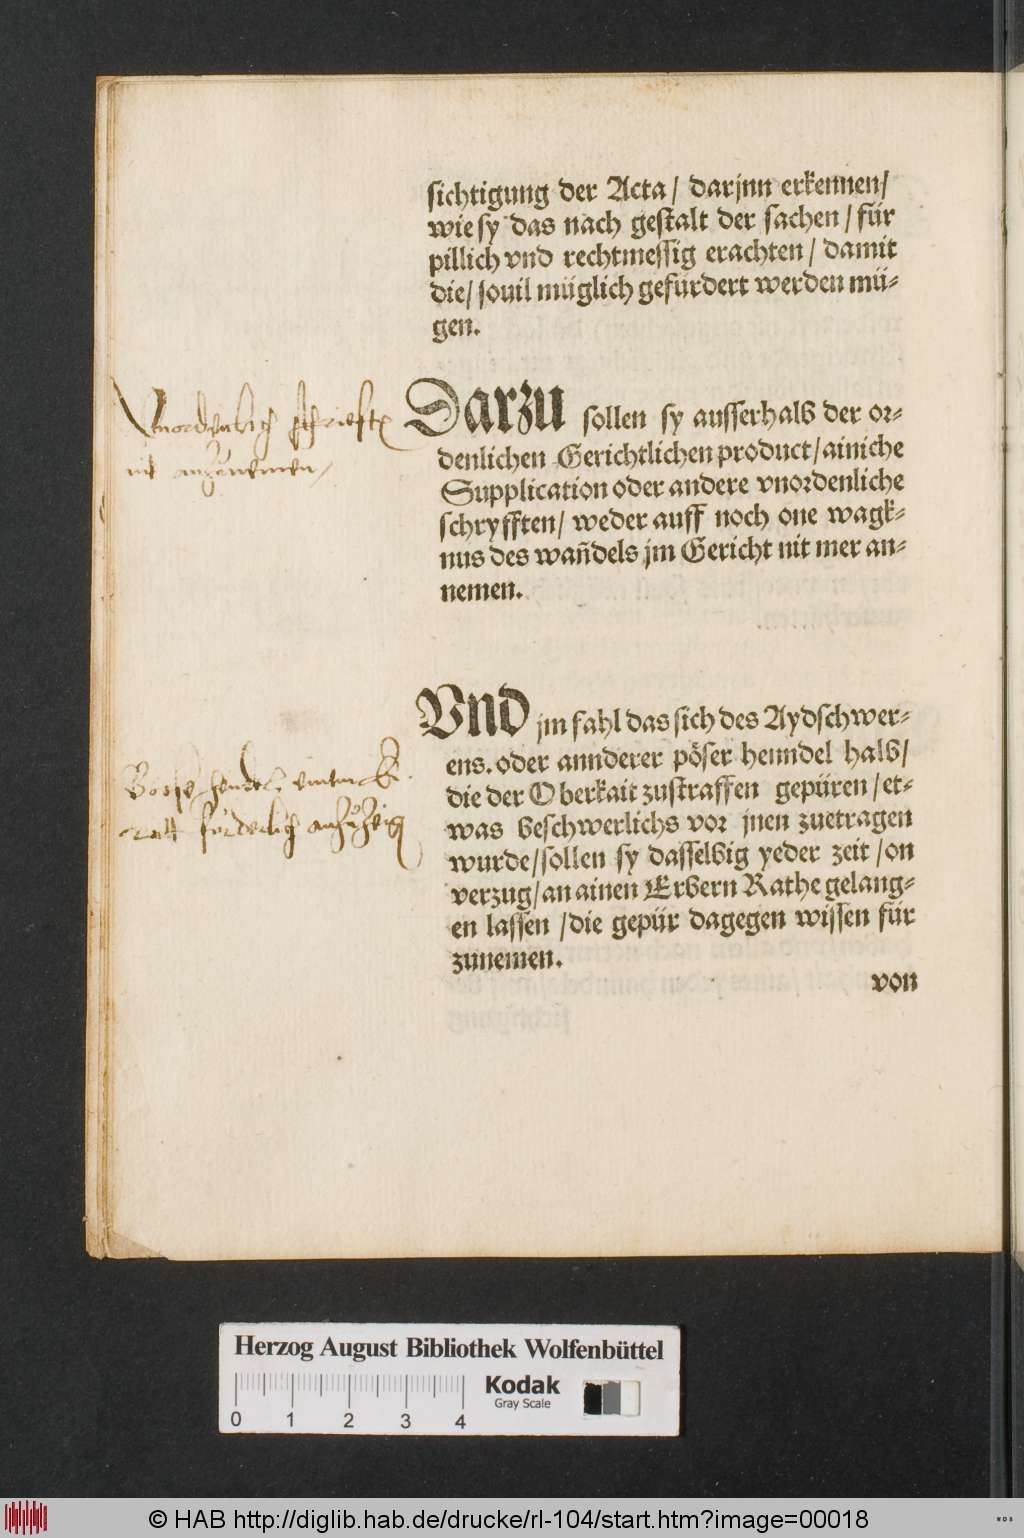 sichtigung der Acta/ darjnn erkennen/
wie sy das nach gestalt der sachen/ für
pillich vnd rechtmessig erachten/ damit
die/ souil müglich gefürdert werden mü-
gen.
Vnordenlich schriefft
nit anzunemen/
Darzu sollen sy ausserhalb der or-
denlichen Gerichtlichen product/ ainiche
Supplication oder andere vnordenliche
schryfften/ weder auff noch one wagk-
nus des wañdels jm Gericht nit mer an-
nemen.
Vnd jm fahl das sich des Aydschwer-
ens. oder annderer pöser henndel halb/
die der Oberkait zustraffen gepüren/ et-
was beschwerlichs vor jnen zuetragen
wurde/ sollen sy dasselbig yeder zeit/ on
verzug/ an ainen Erbern Rathe gelang-
en lassen/ die gepür dagegen wissen für
zunemen.
Bosse hendel
furderlich
von
Herzog August Bibliothek Wolfenbüttel
0 1 2 3 4
Kodak
Gray Scale
© HAB http://diglib.hab.de/drucke/rl-104/start.htm?image=00018